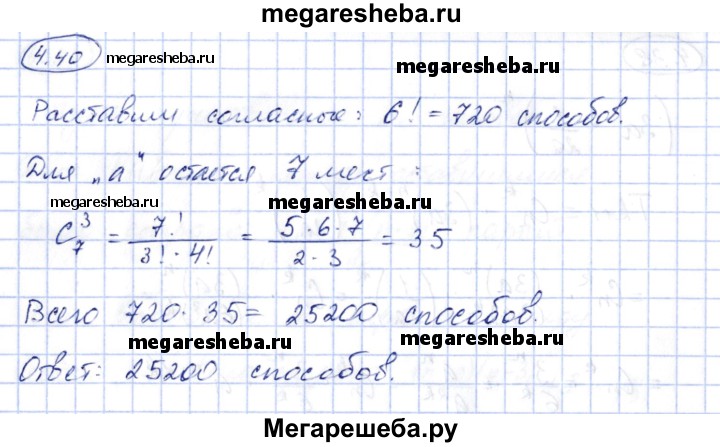 megaresheba.ru
4.40 megaresheba.ru
megaresheba.ru
Расставим согласные: 6! = 720 способов.
Для „а“ остается 7 мест:
megaresheba.ru megaresheba.ru
C₇³ = 7!/(3!·4!) = (5·6·7)/(2·3) = 35
Всего 720·35 = 25200 способов.
megaresheba.ru megaresheba.ru
Ответ: 25200 способов.
Мегарешеба.ру